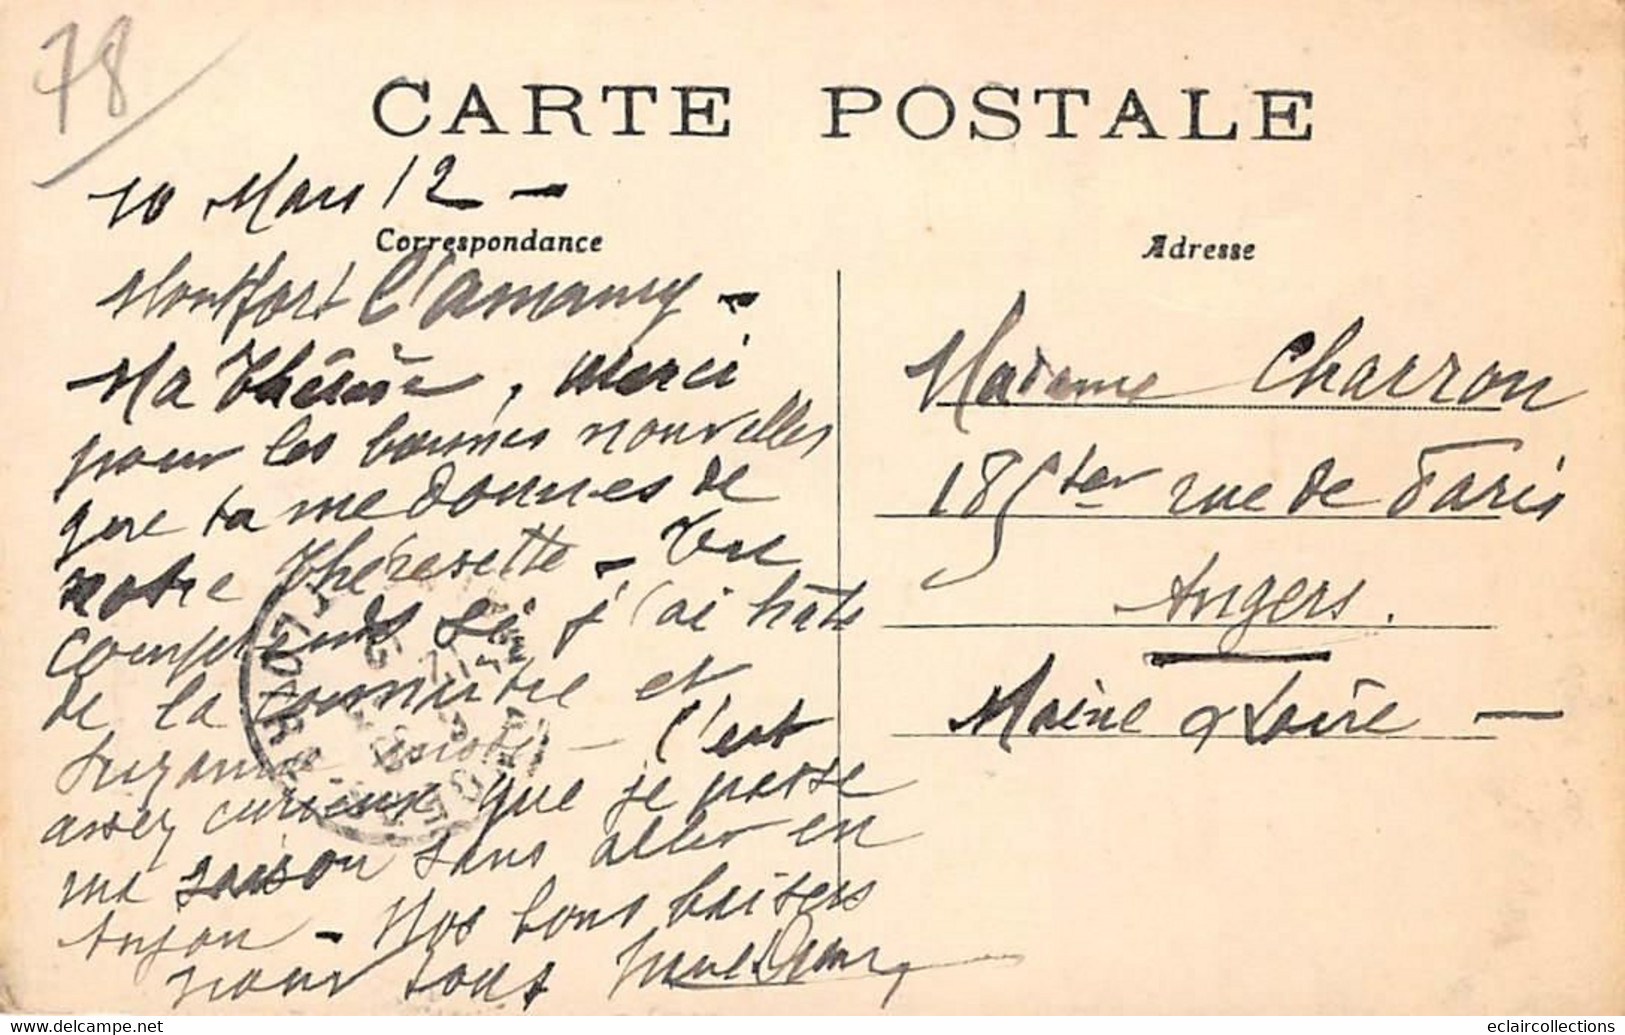 78
CARTE POSTALE
10 Mars 12 —
Correspondance
Montfort l'amaury —
Ma Thérèse, Merci
pour les bonnes nouvelles
que tu me donnes de
notre Théresette — Tu
comprends si j'ai hâte
de la connaître et
Suzanne aussi — C'est
assez curieux que je passe
une saison sans aller en
Anjou — Nos bons baisers
pour tous
Adresse
Madame Charron
185 ter rue de Paris
Angers.
Maine & Loire —
© eclaircollections
delcampe.net